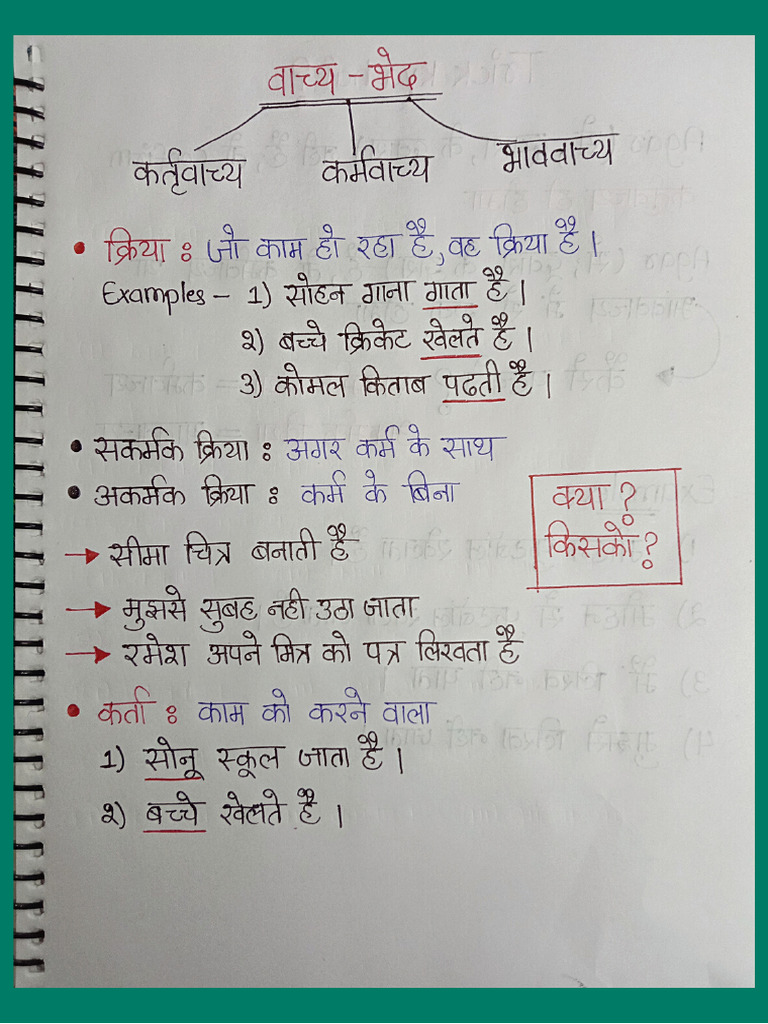 वाच्य - भेद
कर्तृवाच्य कर्मवाच्य भाववाच्य
• क्रिया : जो काम हो रहा है, वह क्रिया है ।
Examples - 1) सोहन गाना गाता है ।
२) बच्चे क्रिकेट खेलते है ।
3) कोमल किताब पढती है ।
• सकर्मक क्रिया : अगर कर्म के साथ
• अकर्मक क्रिया : कर्म के बिना
क्या ?
किसको ?
→ सीमा चित्र बनाती है
→ मुझसे सुबह नही उठा जाता
→ रमेश अपने मित्र को पत्र लिखता है
• कर्ता : काम को करने वाला
1) सोनू स्कूल जाता है ।
२) बच्चे खेलते है ।